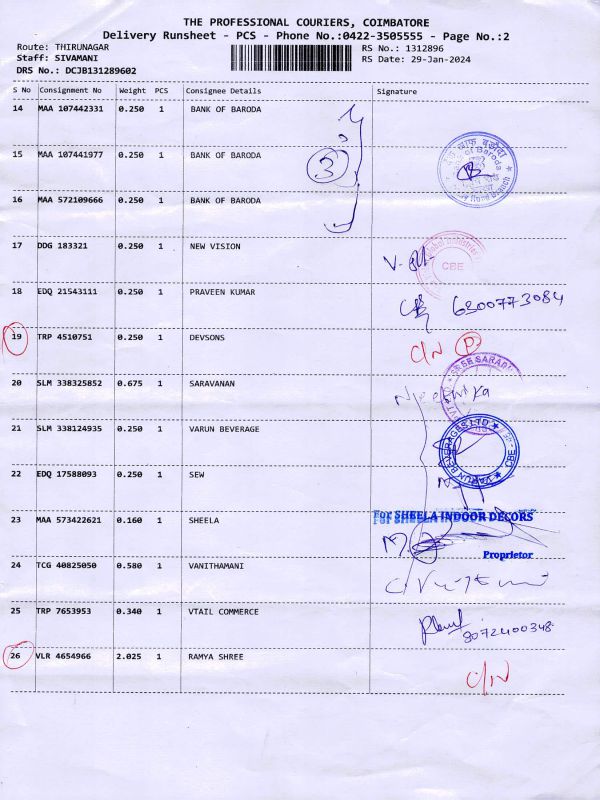 THE PROFESSIONAL COURIERS, COIMBATORE
Delivery Runsheet - PCS - Phone No.:0422-3505555 - Page No.:2
Route: THIRUNAGAR RS No.: 1312896
Staff: SIVAMANI RS Date: 29-Jan-2024
DRS No.: DCJB131289602
S No Consignment No Weight PCS Consignee Details Signature
14 MAA 107442331 0.250 1 BANK OF BARODA
15 MAA 107441977 0.250 1 BANK OF BARODA
3
बैंक ऑफ़ बड़ौदा
of Baroda
Road Branch
16 MAA 572109666 0.250 1 BANK OF BARODA
17 DDG 183321 0.250 1 NEW VISION
CBE
18 EDQ 21543111 0.250 1 PRAVEEN KUMAR 6300773084
19 TRP 4510751 0.250 1 DEVSONS C/N P
20 SLM 338325852 0.675 1 SARAVANAN
21 SLM 338124935 0.250 1 VARUN BEVERAGE
VARUN BEVERAGES LTD CBE
22 EDQ 17588093 0.250 1 SEW
23 MAA 573422621 0.160 1 SHEELA
For SHEELA INDOOR DECORS
Proprietor
24 TCG 40825050 0.580 1 VANITHAMANI
25 TRP 7653953 0.340 1 VTAIL COMMERCE
9072400348
26 VLR 4654966 2.025 1 RAMYA SHREE C/N